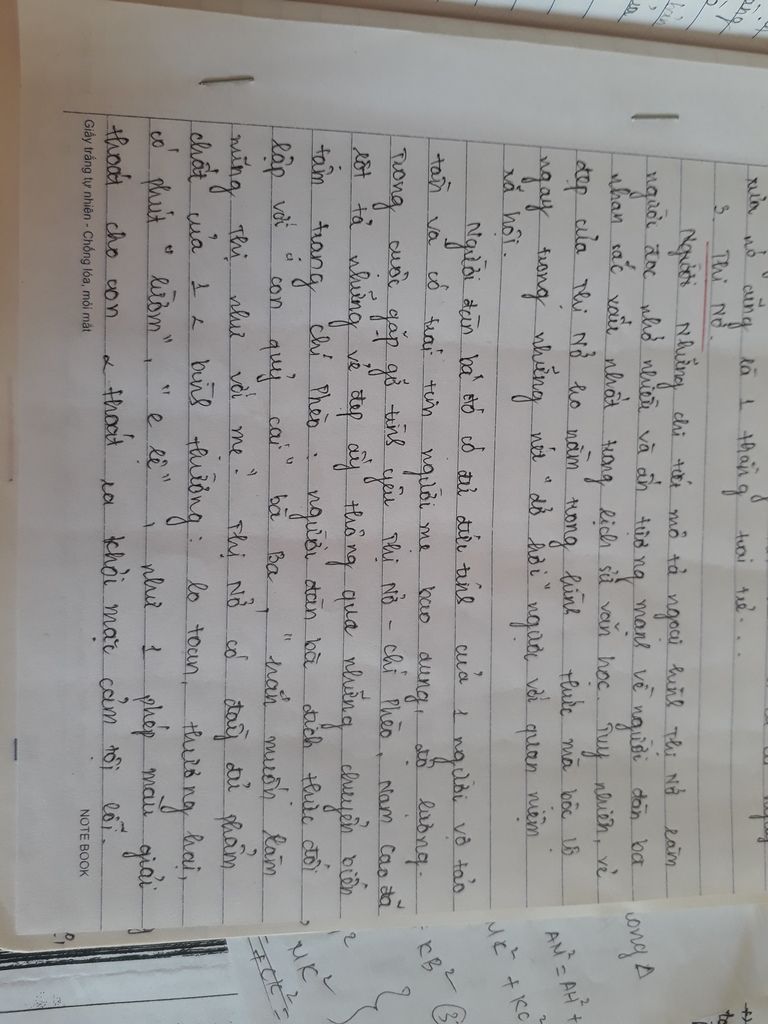 xưa nó cũng là 1 thằng trai trẻ...
3. Thị Nở.
Người Những chi tiết mô tả ngoại hình Thị Nở làm
người đọc nhớ nhiều và ấn tượng mạnh về người đàn bà
nhan sắc xấu nhất trong lịch sử văn học. Tuy nhiên, vẻ
đẹp của Thị Nở ko nằm trong hình thức mà bộc lộ
ngay trong những nét "dở hơi" người với quan niệm
xã hội.
Người đàn bà đó có đủ đức tính của 1 người vợ tảo
tần và có trái tim người mẹ bao dung, độ lượng.
Trong cuộc gặp gỡ tình yêu Thị Nở - Chí Phèo, Nam Cao đã
lột tả những vẻ đẹp ấy thông qua những chuyển biến
tâm trạng Chí Phèo: người đàn bà đích thực đối
lập với "con quỷ cái" bà Ba, "hắn muốn làm
nũng Thị như với mẹ". Thị Nở có đầy đủ phẩm
chất của 1 bình thường: lo toan, thương hại,
có phút "lườm", "e lệ", như 1 phép mầu giải
thoát cho con thoát ra khỏi mặc cảm tội lỗi.
Giấy trắng tự nhiên - Chống lóa, mỏi mắt
NOTE BOOK
ong Δ
AM² = AH² +
MK² + KC²
= KB² (3)
MK²